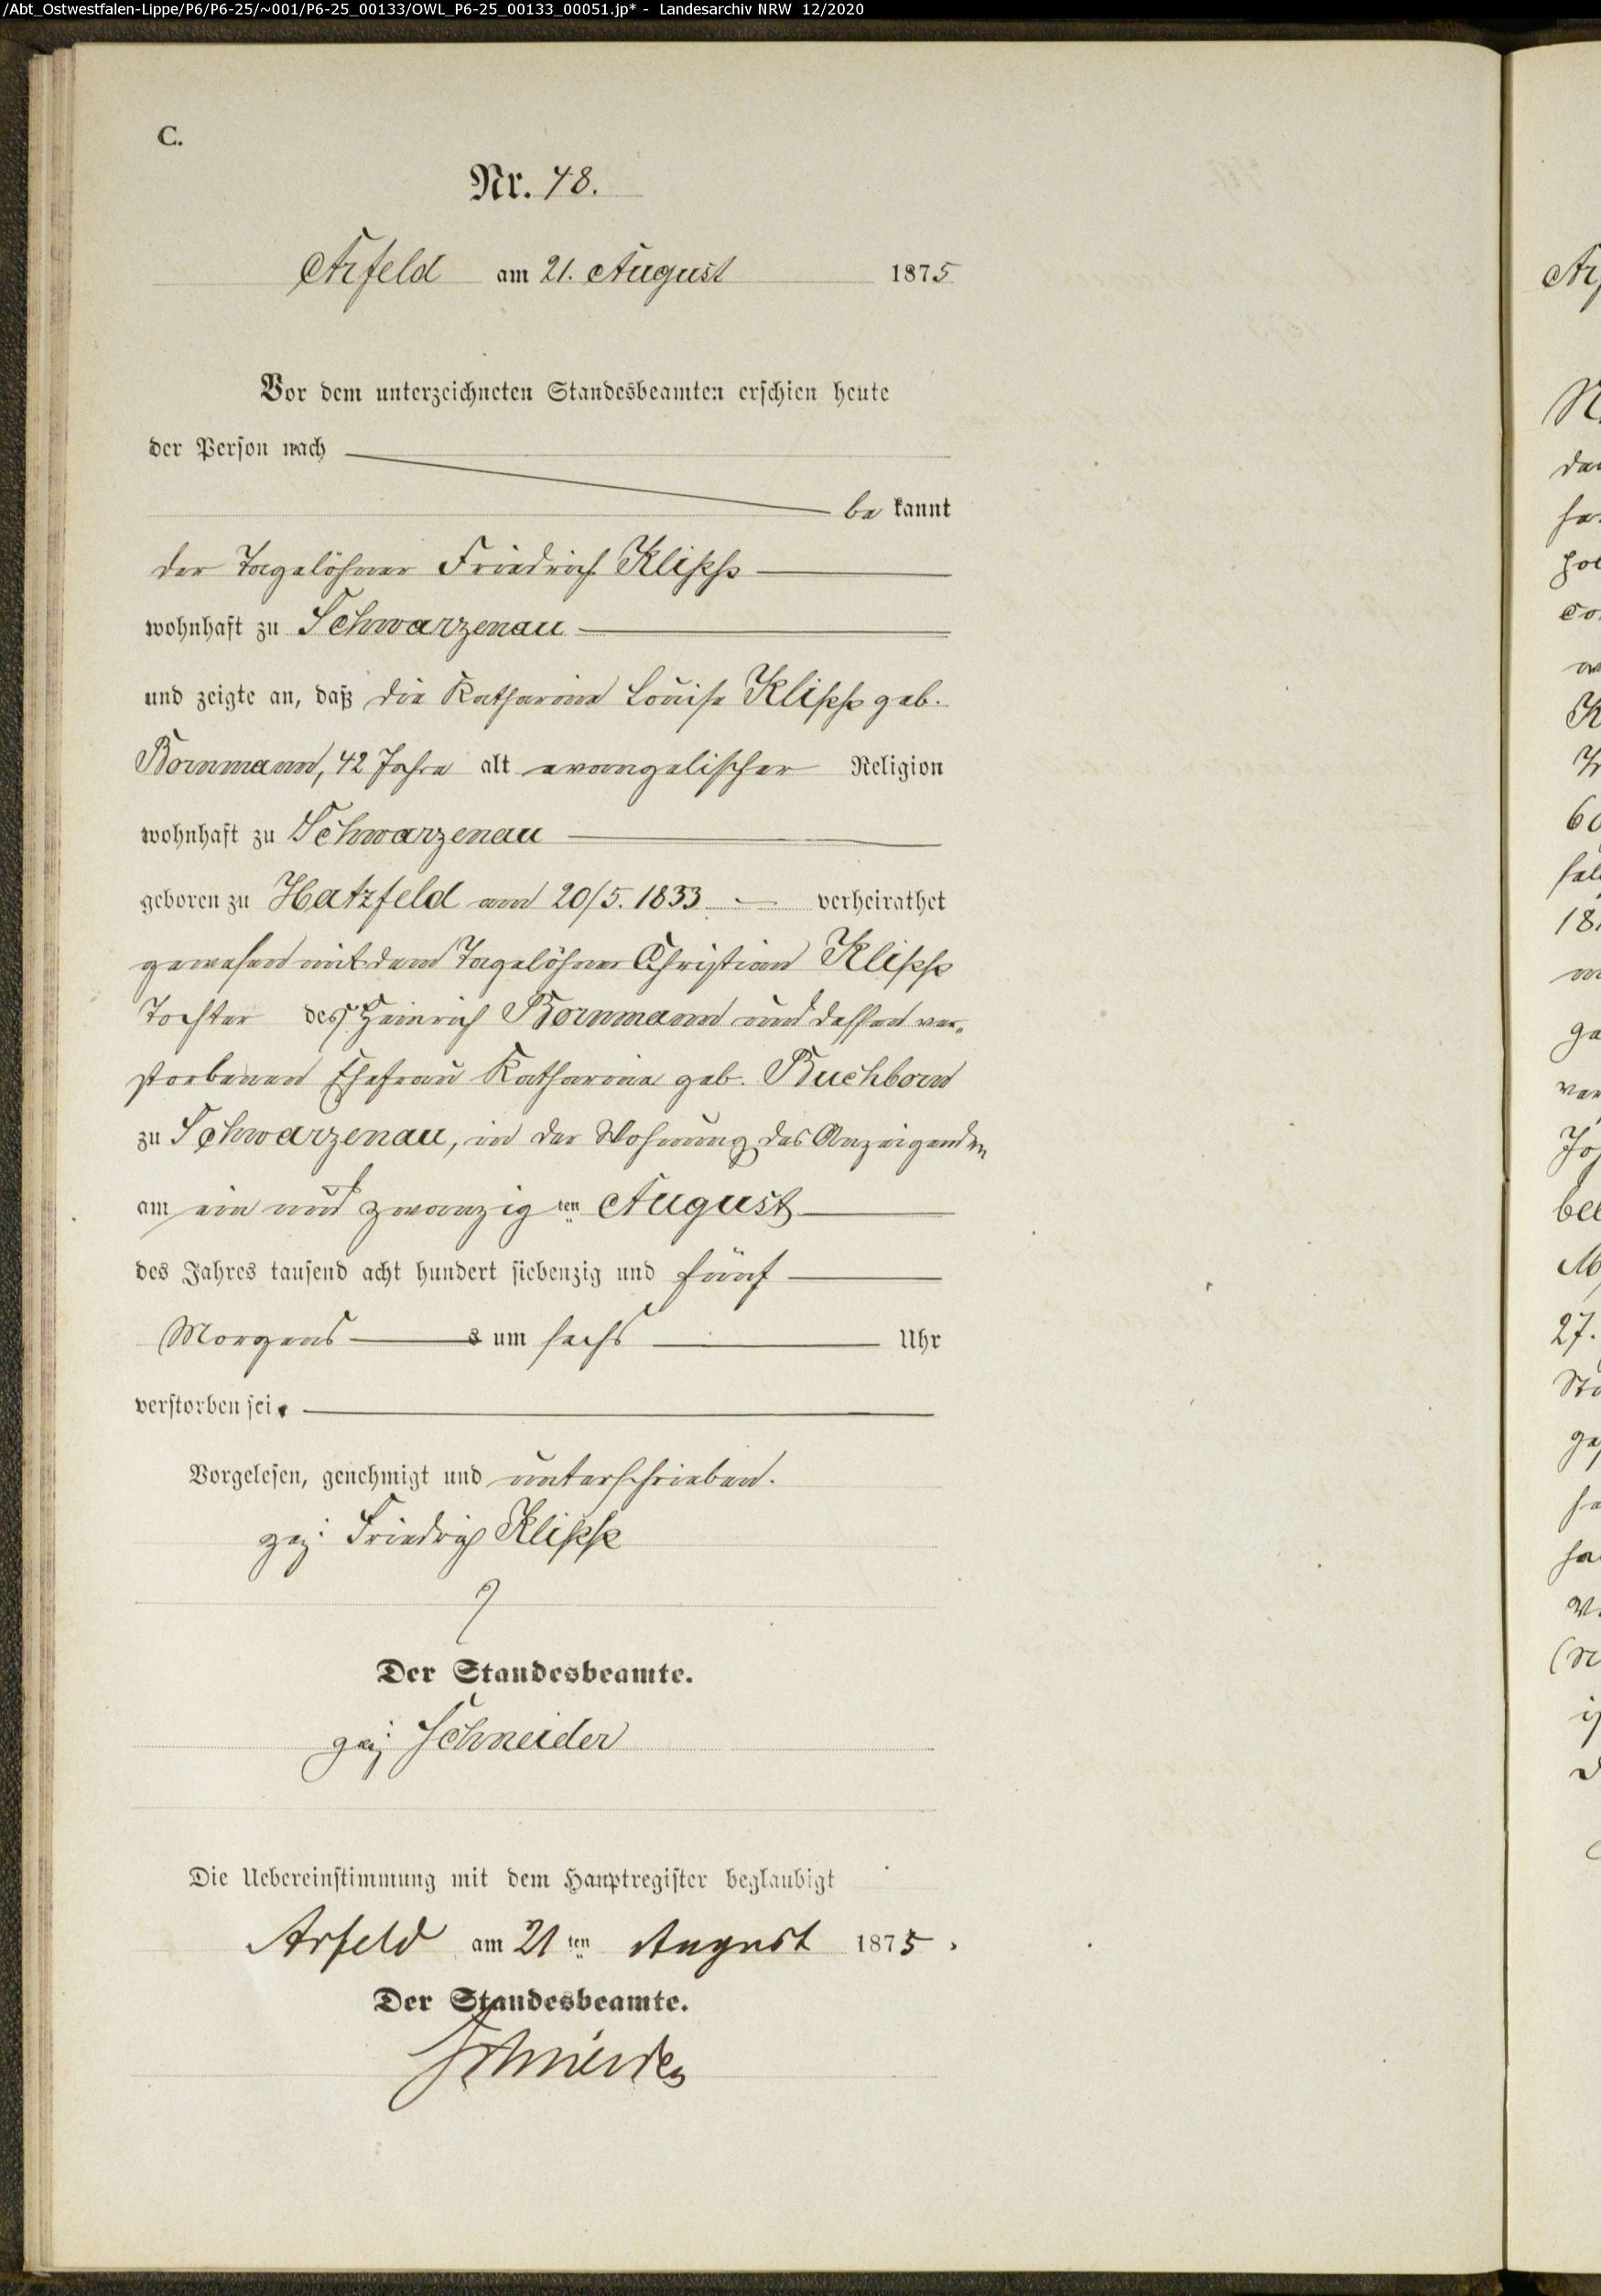 /Abt_Ostwestfalen-Lippe/P6/P6-25/~001/P6-25_00133/OWL_P6-25_00133_00051.jp* - Landesarchiv NRW 12/2020
C.
Nr. 48.
Arfeld am 21. August 1875
Vor dem unterzeichneten Standesbeamten erschien heute
der Person nach
be kannt
der Tagelöhner Friedrich Klipp
wohnhaft zu Schwarzenau
und zeigte an, daß die Katharine Louise Klipp geb.
Bornmann, 42 Jahre alt evangelischer Religion
wohnhaft zu Schwarzenau
geboren zu Hatzfeld am 20/5. 1833 verheirathet
gewesen mit dem Tagelöhner Christian Klipp
Tochter des Heinrich Bornmann und dessen ver-
storbenen Ehefrau Katharine geb. Buchborn
zu Schwarzenau, in der Wohnung des Anzeigenden
am ein und zwanzig ten August
des Jahres tausend acht hundert siebenzig und fünf
Morgens s um sechs Uhr
verstorben sei.
Vorgelesen, genehmigt und unterschrieben.
gez: Friedrich Klipp
Der Standesbeamte.
gez: Schneider
Die Uebereinstimmung mit dem Hauptregister beglaubigt
Arfeld am 21 ten August 1875.
Der Standesbeamte.
Schneider